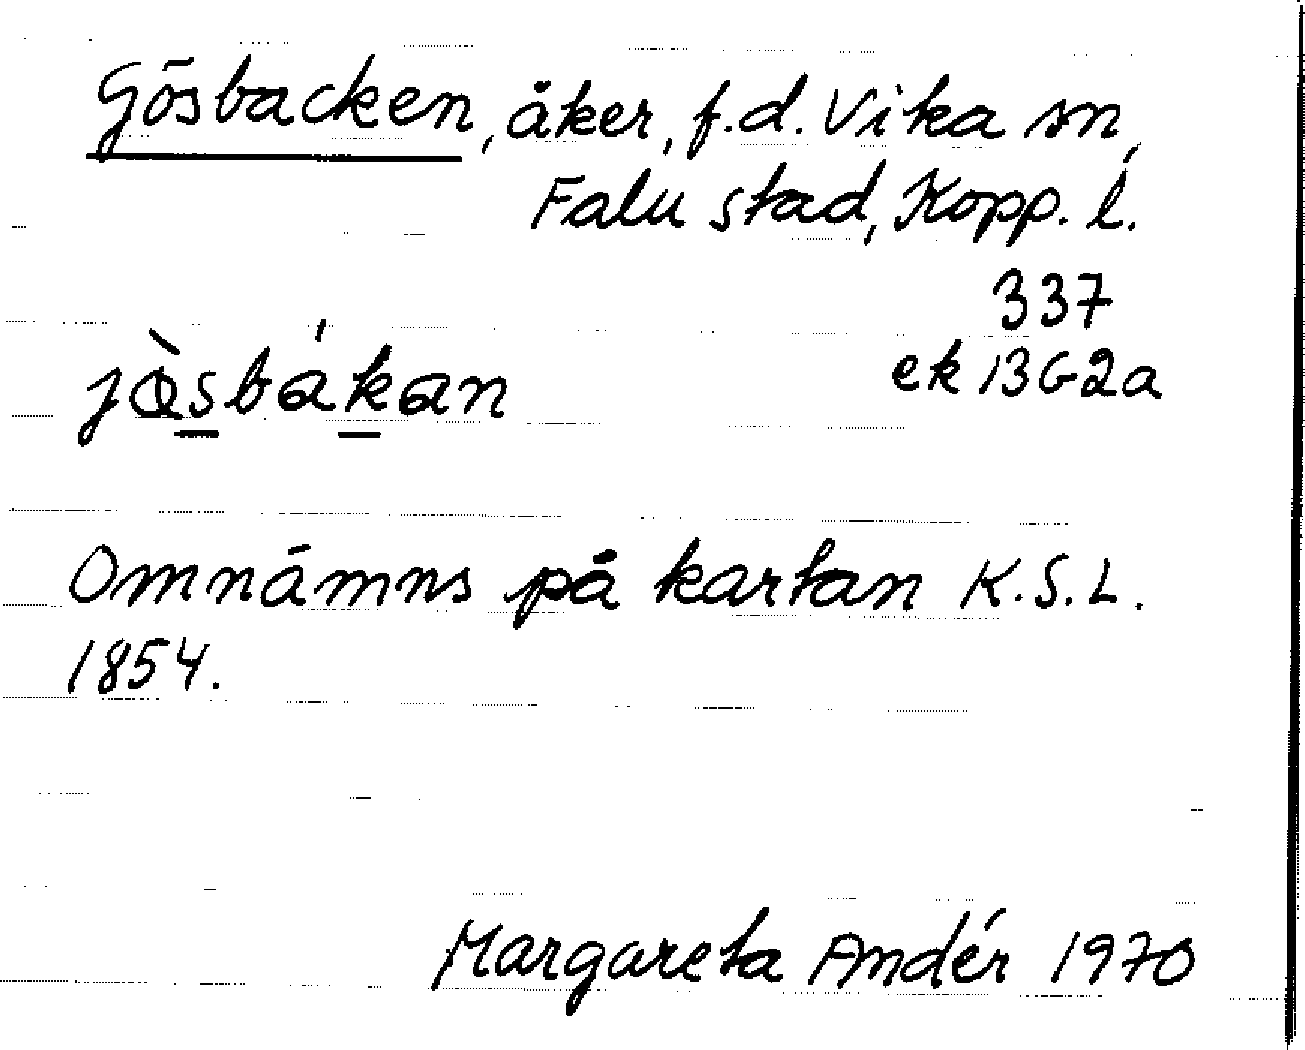 Gösbacken, åker, f.d. Vika sn,
Falu stad, Kopp. l.
337
jø̀sbákan ek 13G2a
Omnämns på kartan K.S.L.
1854.
Margareta Andér 1970